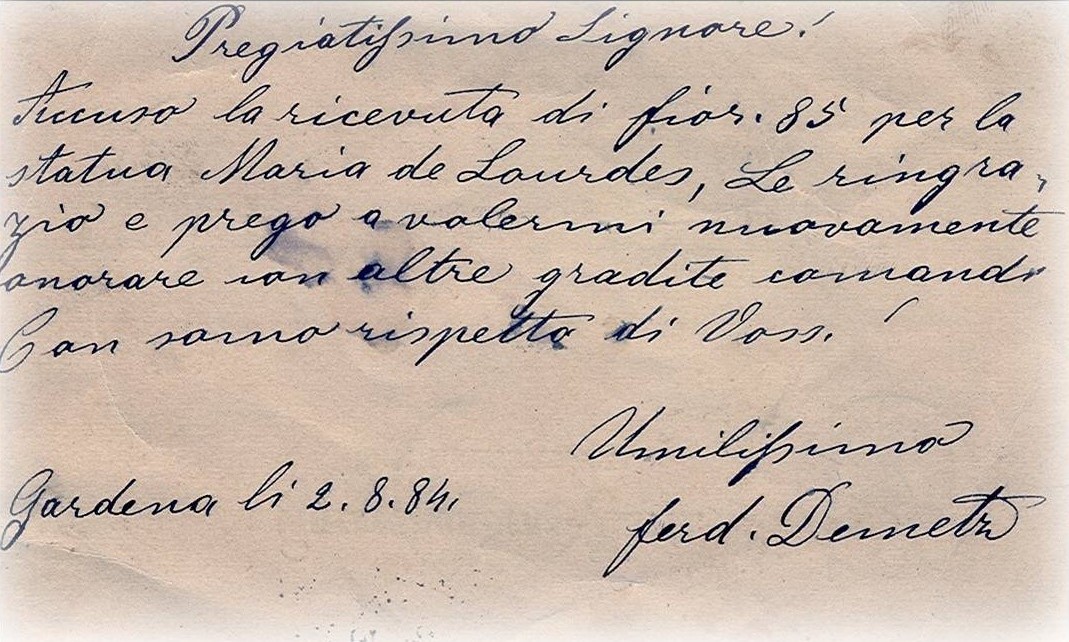 Pregiatissimo Signore!
Accuso la ricevuta di fior. 85 per la
statua Maria de Lourdes, Le ringra-
zio e prego a volermi nuovamente
onorare con altre gradite comandi
Con somo rispetto di Voss.
Umilissimo
Gardena li 2.8.84.
ferd. Demetz